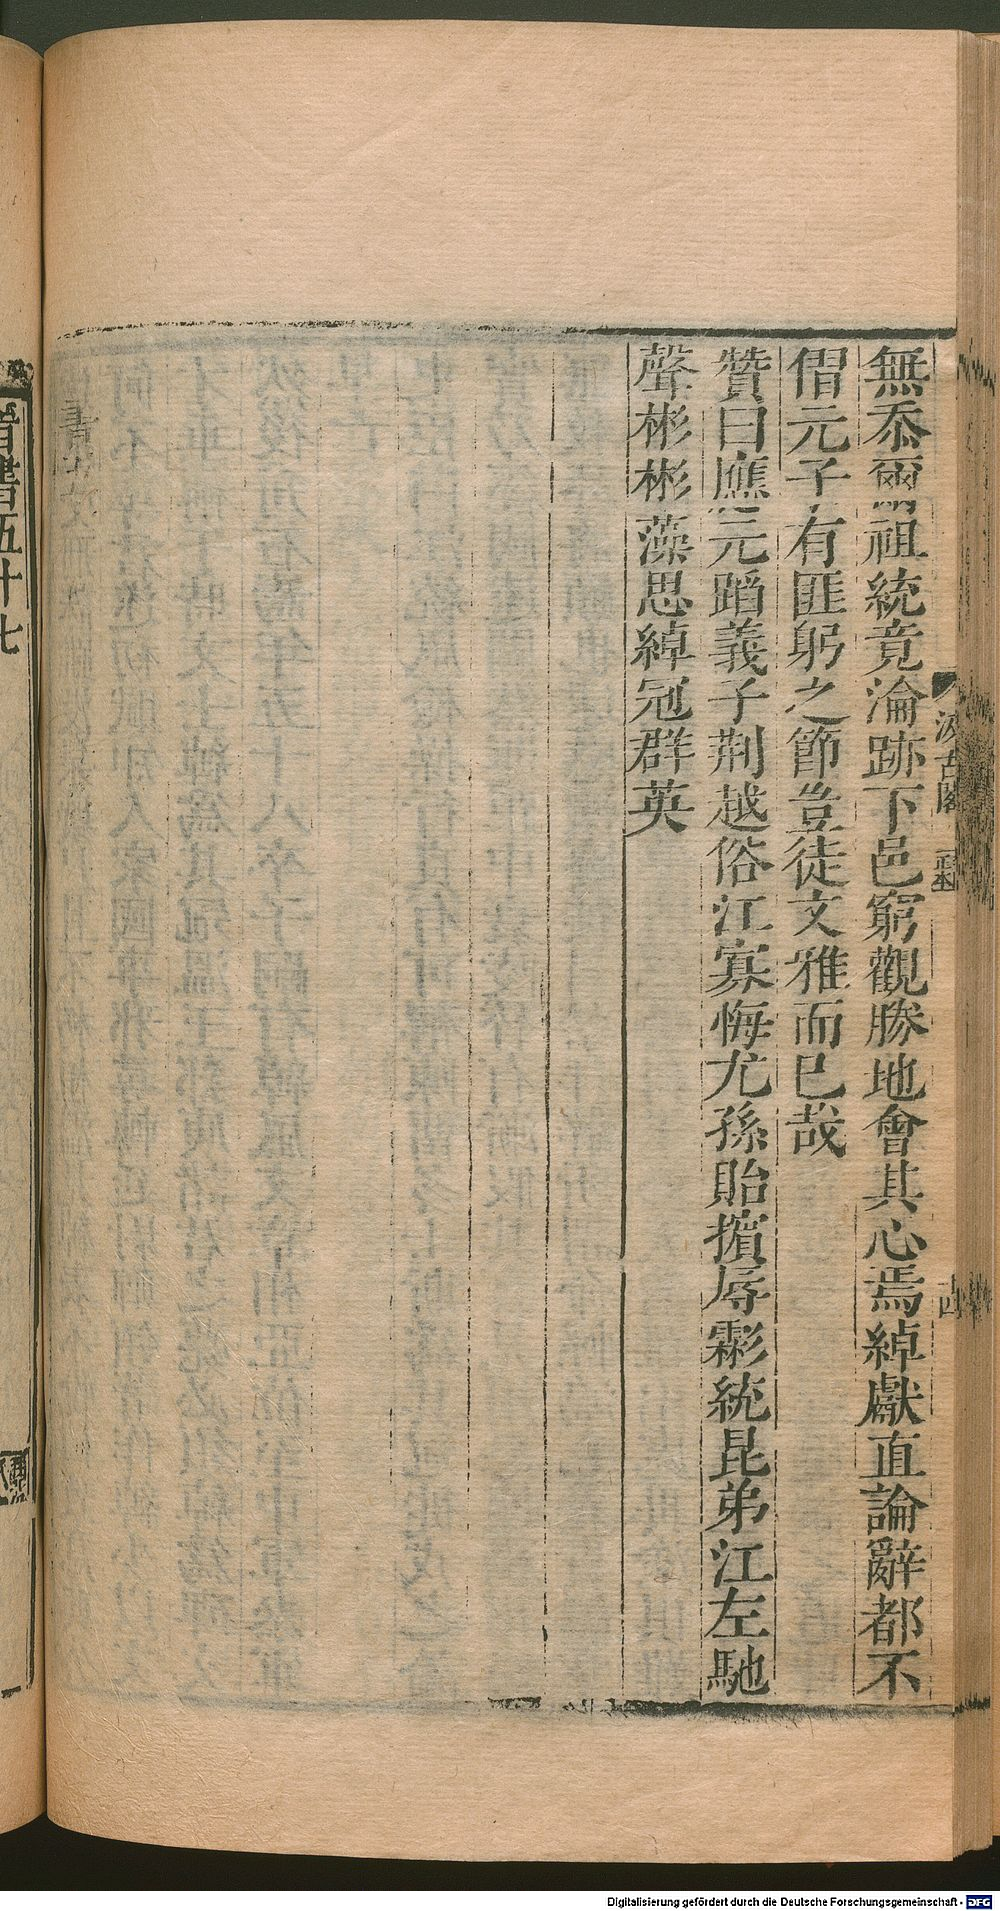 無忝爾祖統竟淪跡下邑窮觀勝地會其心焉綽獻直論辭都不
僭元子有匪躬之節豈徒文雅而已哉
贊曰應元蹈義子荆越俗江寡悔尤孫貽擯辱霖統昆弟江左馳
聲彬彬藻思綽冠群英
汲古閣
十四
晉書五十七
Digitalisierung gefördert durch die Deutsche Forschungsgemeinschaft - DFG